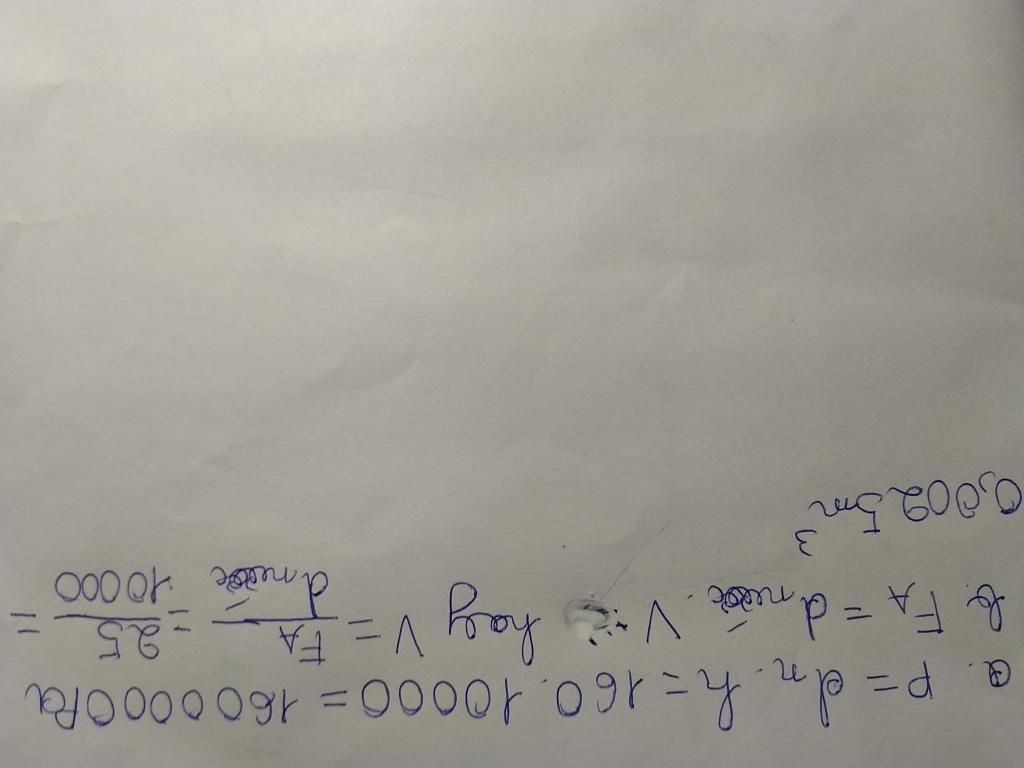 a. P = dn. h = 160. 10000 = 1600000Pa
b. FA = dnước. V hay V = FA/dnước = 25/10000 =
0,0025m³